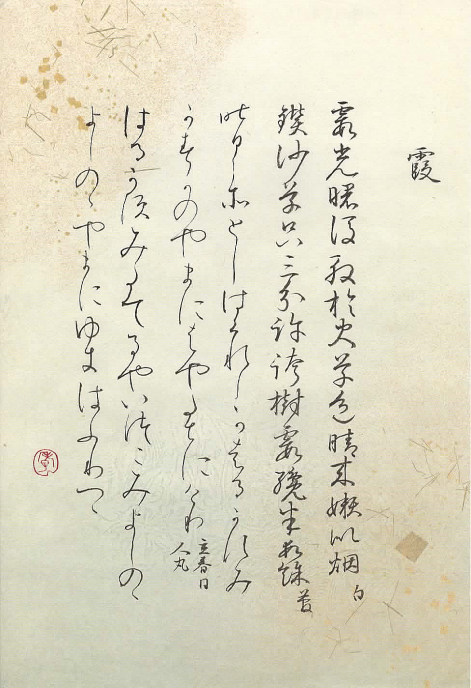 霞
霞光曙後殷於火草色晴来嫩似烟 白
鑚沙草只三分許跨樹霞纔半段餘 菅
昨日こそとしはくれしかはるかすみ
かすかのやまにはやたちにけり 立春日 人丸
はるかすみたてるやいつこみよしのゝ
よしのゝやまにゆきはふりつゝ